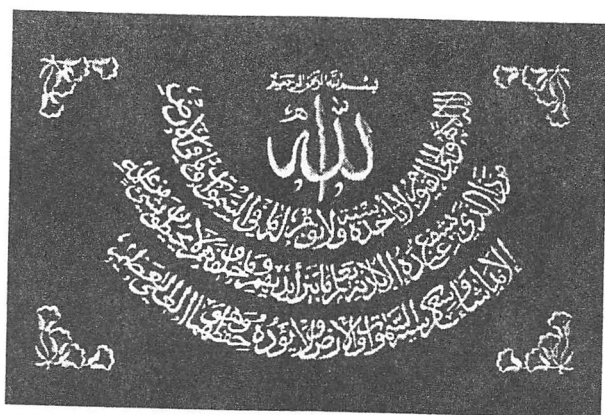 بسم الله الرحمن الرحيم
الله
الله لا إله إلا هو الحي القيوم لا تأخذه سنة ولا نوم له ما في السموات وما في الأرض
من ذا الذي يشفع عنده إلا بإذنه يعلم ما بين أيديهم وما خلفهم ولا يحيطون بشيء من علمه
إلا بما شاء وسع كرسيه السموات والأرض ولا يؤده حفظهما وهو العلي العظيم